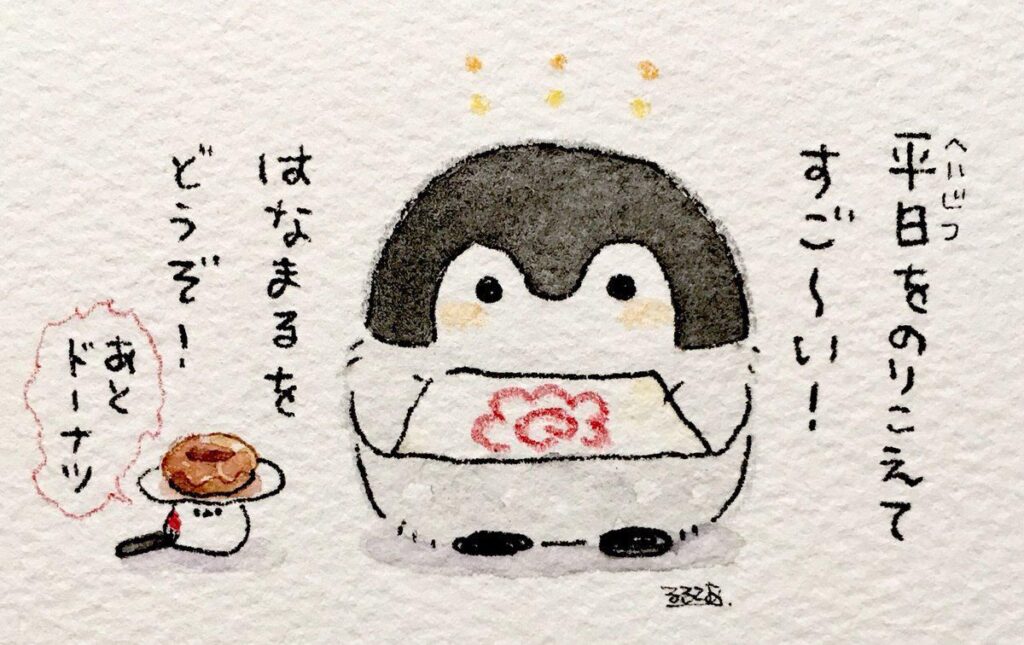 平日をのりこえて
へいじつ
すご〜い！
はなまるを
どうぞ！
あと
ドーナツ
るるてあ.